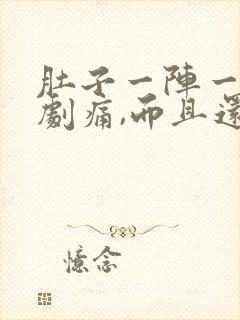 肚子一陣一
劇痛,而且還
憶念